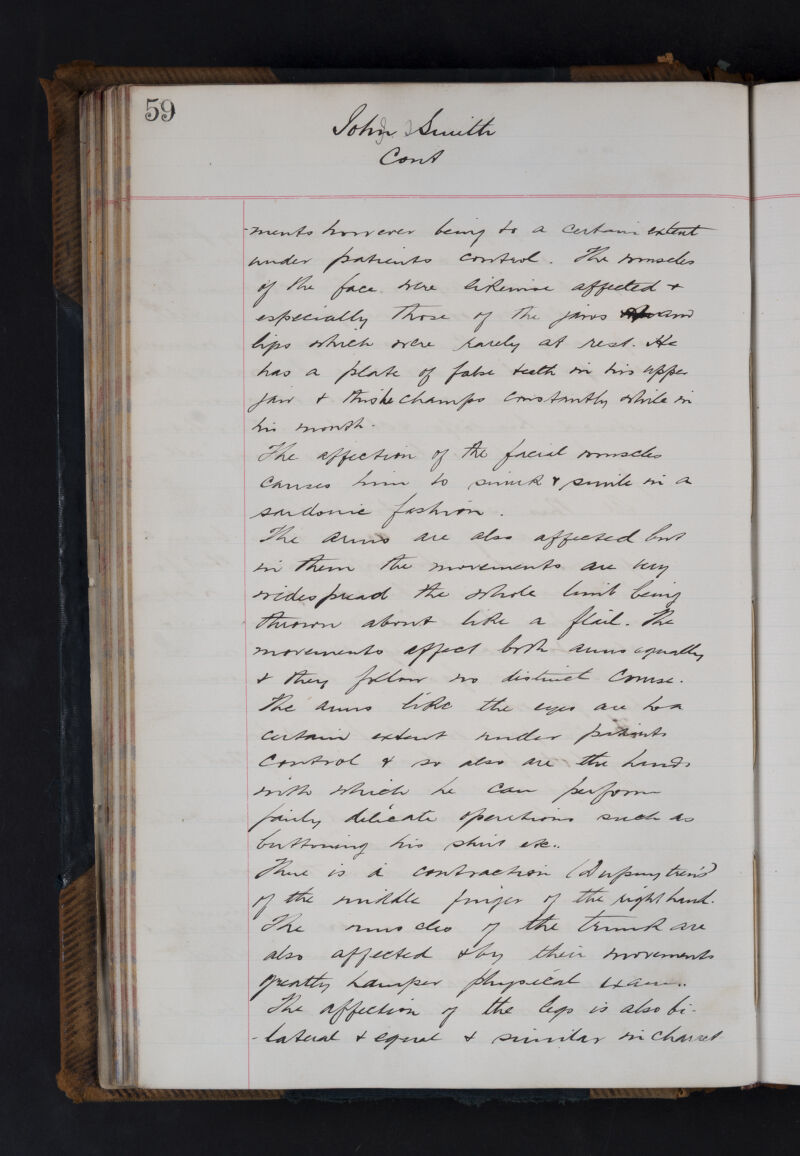 59
John Smith
Cont
-ments however being to a certain extent
under patients control. The muscles
of the face were likewise affected &
especially those of the jaws and
lips which were rarely at rest. He
has a plate of false teeth in his upper
jaw & this he champs constantly while in
his mouth.
The affection of the facial muscles
causes him to smirk & smile in a
sardonic fashion.
The arms are also affected but
in them the movements are very
widespread the whole limb being
thrown about like a flail. The
movements affect both arms equally
& they follow no distinct course.
The arms like the eyes are to a
certain extent under patients
control & so also are the hands
with which he can perform
fairly delicate operations such as
buttoning his shirt etc..
There is a contraction (Dupuytren's)
of the middle finger of the right hand.
The muscles of the trunk are
also affected & by their movements
greatly hamper physical exam..
The affection of the legs is also bi-
-lateral & equal & similar in charact